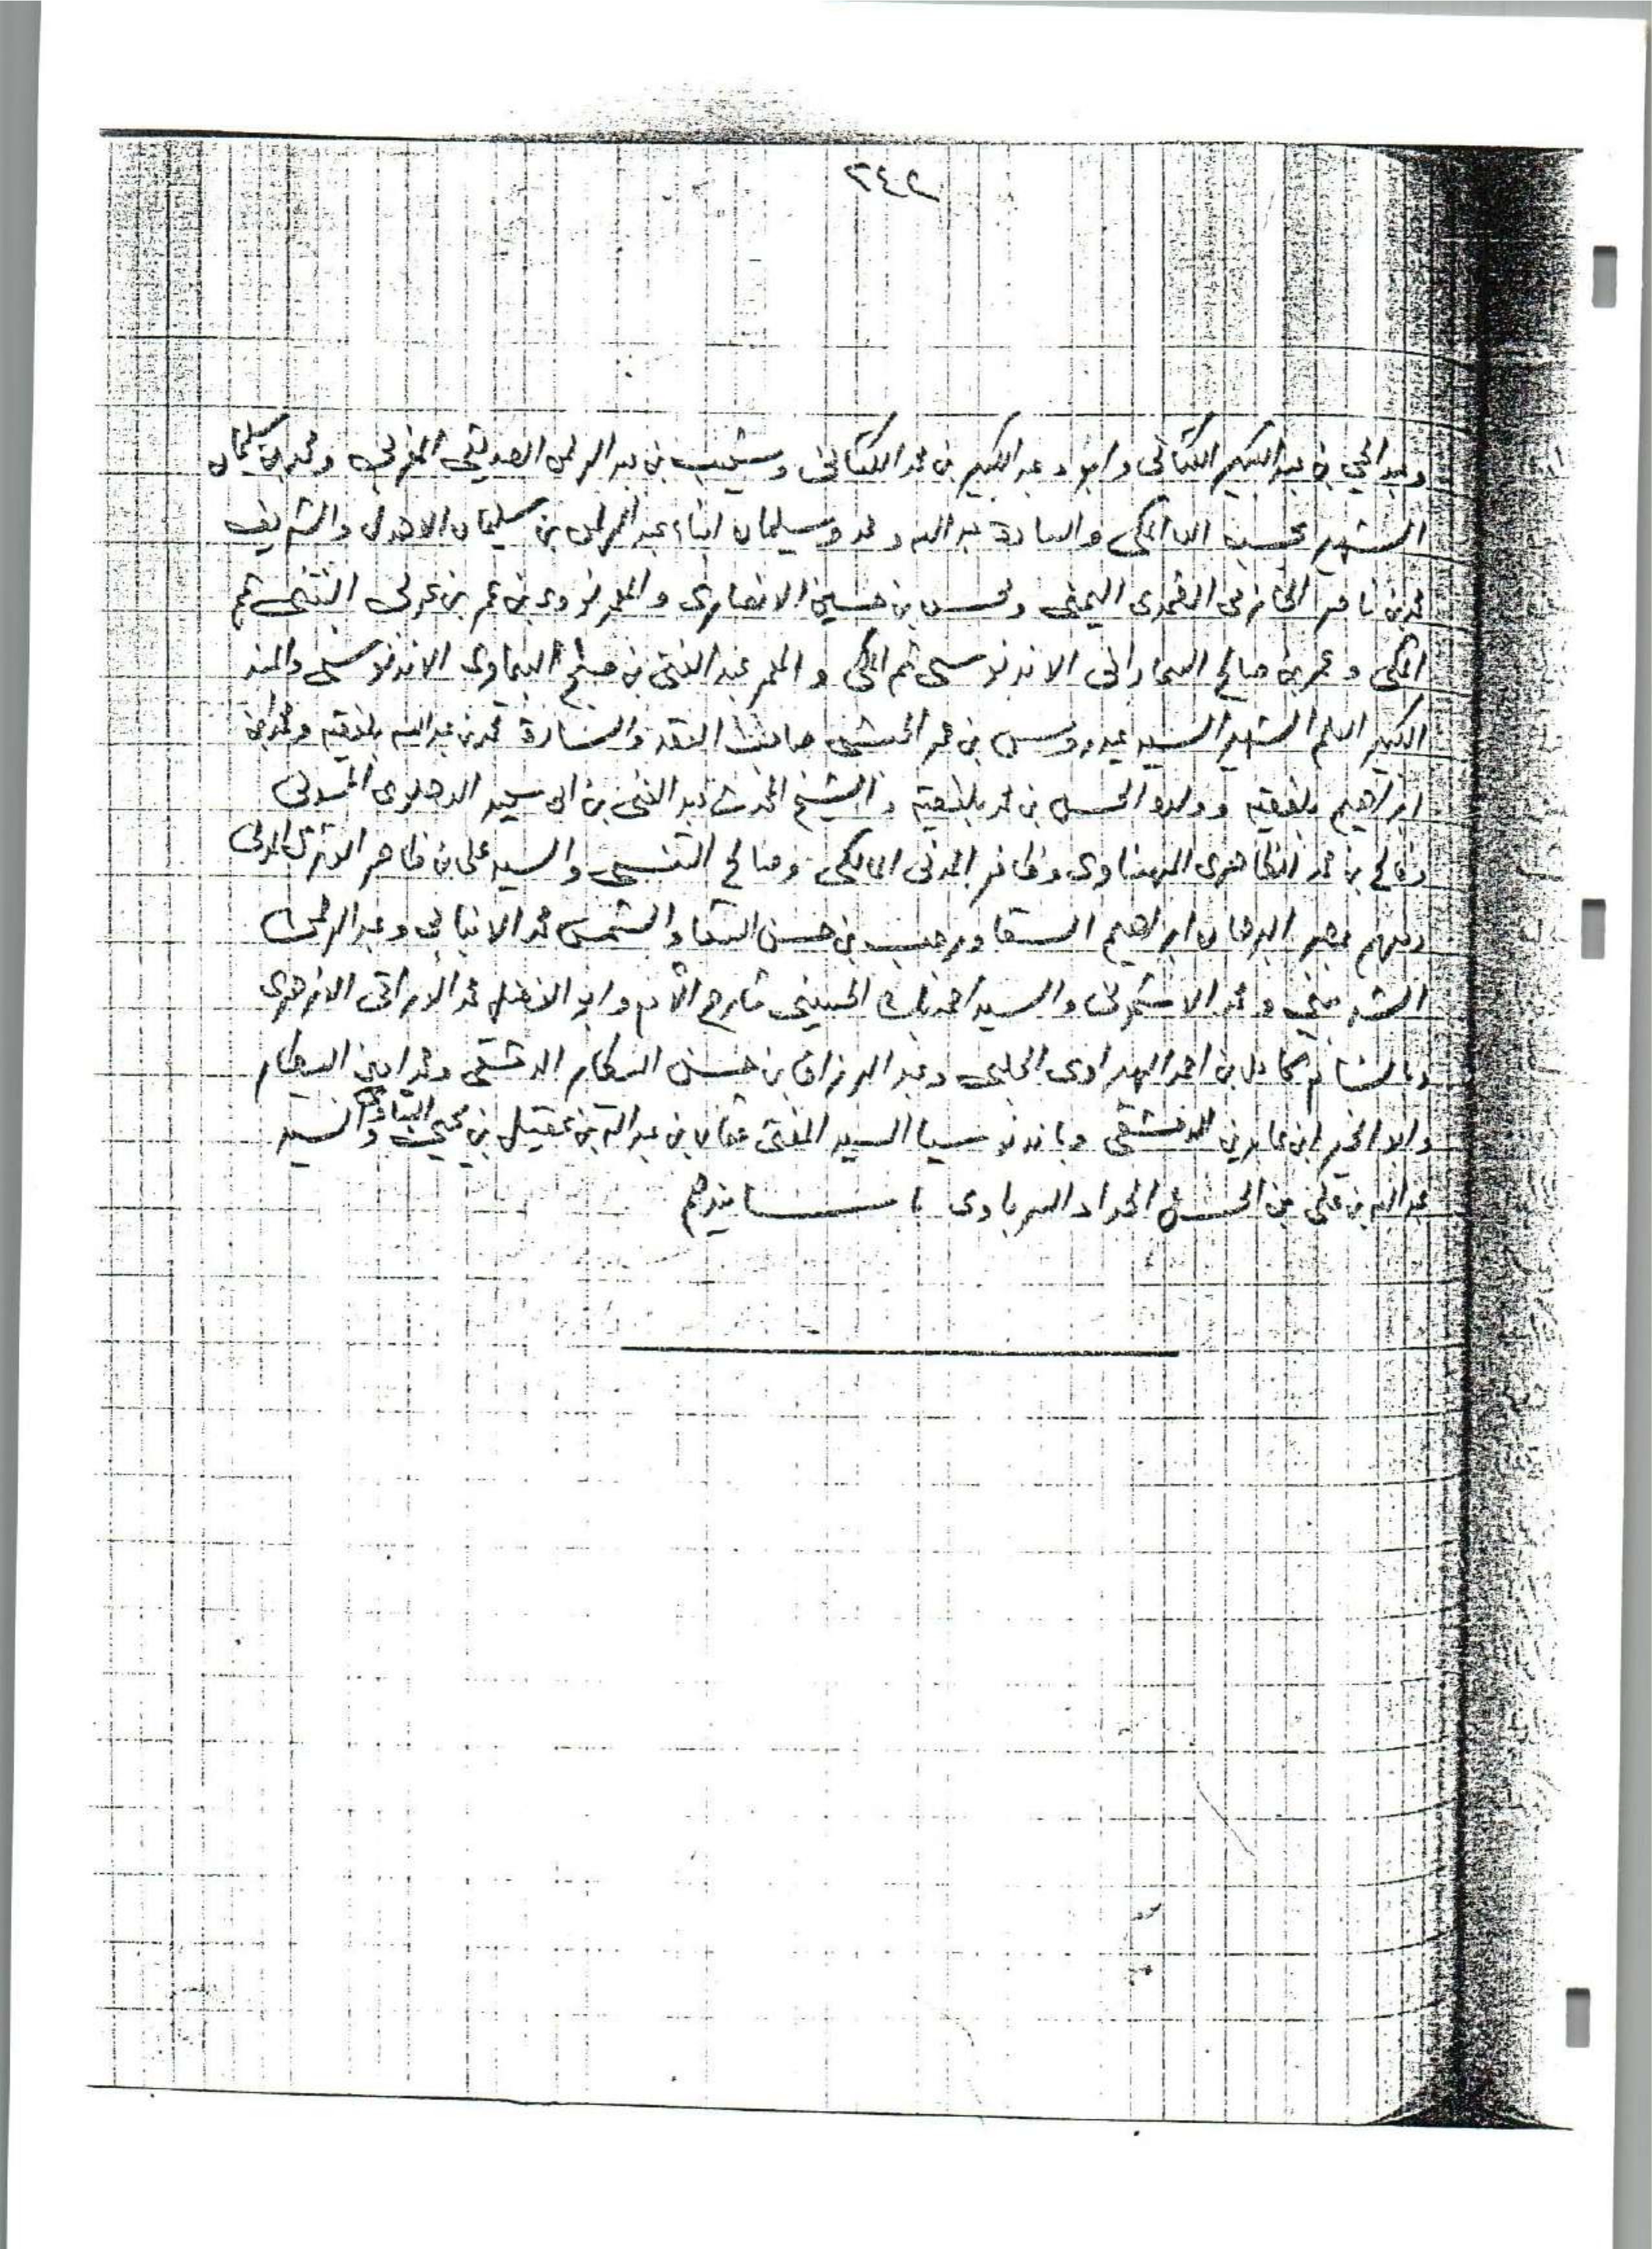 ٢٤٢
وعبد الحي بن عبد الكبير الكتاني وابوه عبد الكبير بن محمد الكتاني وشعيب بن عبد الرحمن الصديقي المغربي ومحمد بن سليمان
الشهير بحسب الله المكي والسادة عبد الله ومحمد وسليمان ابناء عبد الرحمن بن سليمان الاهدل والشريف
محمد بن ناصر الحازمي الضمدي اليمني ومحسن بن حسين الانصاري والمعمر نووي بن عمر بن عربي البنتني ثم
المكي وعمر بن صالح السماراني الاندونوسي ثم المكي والمعمر عبد الغني بن صبح البيماوي الاندونوسي والمسند
الكبير العلم الشهير السيد عيدروس بن عمر الحبشي صاحب العقد والسادة محمد بن عبد الله بلفقيه ومحمد بن
ابراهيم بلفقيه وولده المحسن بن محمد بلفقيه والشيخ المحدث عبد الغني بن ابي سعيد الدهلوي المدني
وفالح بن محمد الظاهري المهناوي وظافر المدني المالكي وصالح التونسي والسيد علي بن ظاهر الوتري المدني
ومنهم بمصر البرهان ابراهيم السقا ورجب بن حسن السقا والشمس محمد الانبابي وعبد الرحمن
الشربيني ومحمد الاشموني والسيد احمد بك الحسيني شارح الأم وابو الفضل محمد الوراقي الازهري
وبالشام كامل بن احمد الهبراوي الحلبي وعبد الرزاق بن حسن البيطار الدمشقي ومحمد امين البيطار
وابو الخير ابن عابدين الدمشقي وباندونوسيا السيد المفتي عثمان بن عبد الله بن عقيل بن يحيى البتاوي والسيد
عبد الله بن علي بن الحسن الحداد السرباوي باسانيدهم